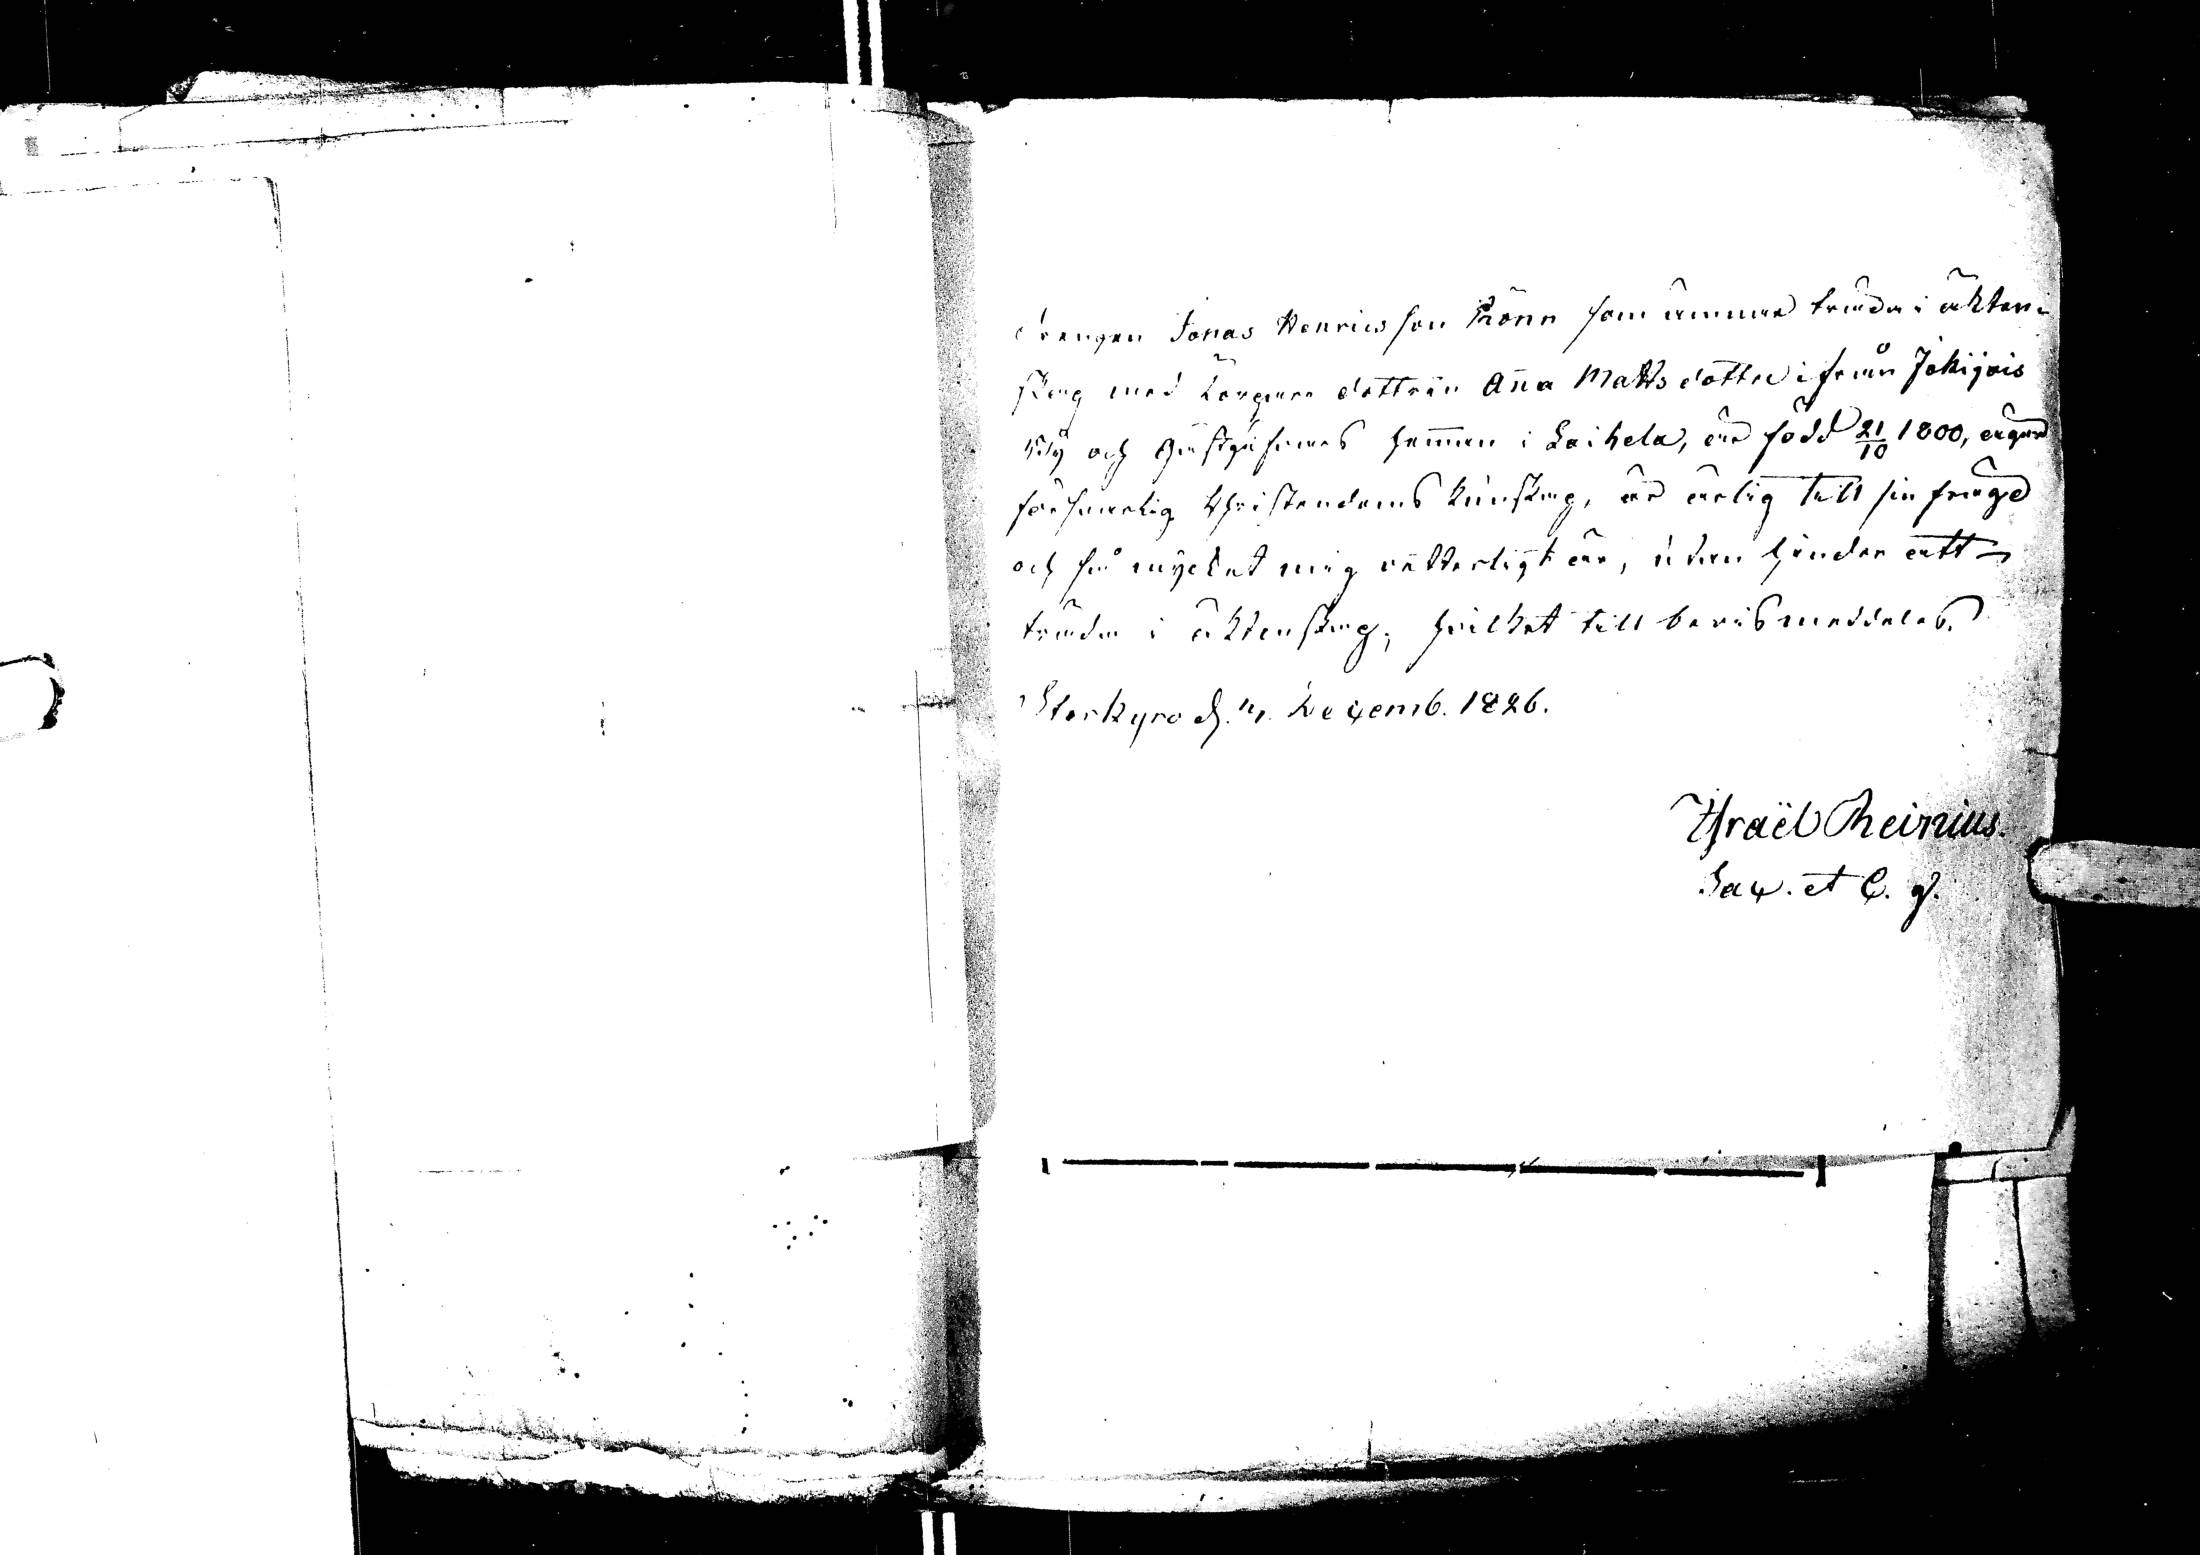 Drengen Jonas Henricsson Rönn som ämnar träda i äkten-
skap med Torpare dottren Anna Mattsdotter ifrån Jokijois
By och Gästgifvars hemman i Laihela, är född 21/10 1800, äger
försvarlig Christendoms kunskap, är ärlig till sin frägd
och så mycket mig vetterligt är, utan hinder att
träda i äktenskap, hvilket till bevis meddelas.
Storkyro d. Decemb. 1826.
Israël Reinius.
Sac. et C. g.